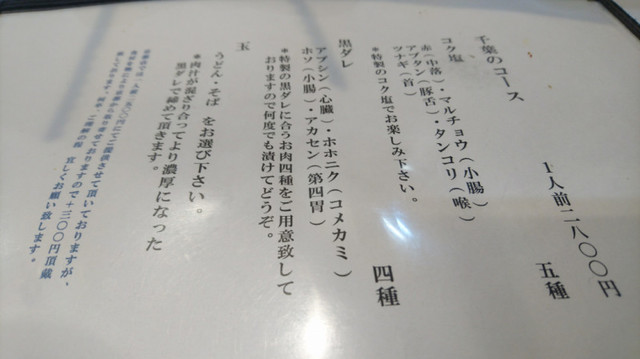 千葉のコース
1人前二八〇〇円
コク塩
五種
赤(中落)・マルチョウ(小腸)
アブタン(豚舌)・タンコリ(喉)
ツナギ(首)
*特製のコク塩でお楽しみ下さい。
黒ダレ
四種
アブシン(心臓)・ホホニク(コメカミ)
ホソ(小腸)・アカセン(第四胃)
*特製の黒ダレに合うお肉四種をご用意致して
おりますので何度でも漬けてどうぞ。
玉
うどん・そば をお選び下さい。
*肉汁が混ざり合ってより濃厚になった
黒ダレで締めて頂きます。
ますので+三〇〇円頂戴
宜しくお願い致します。